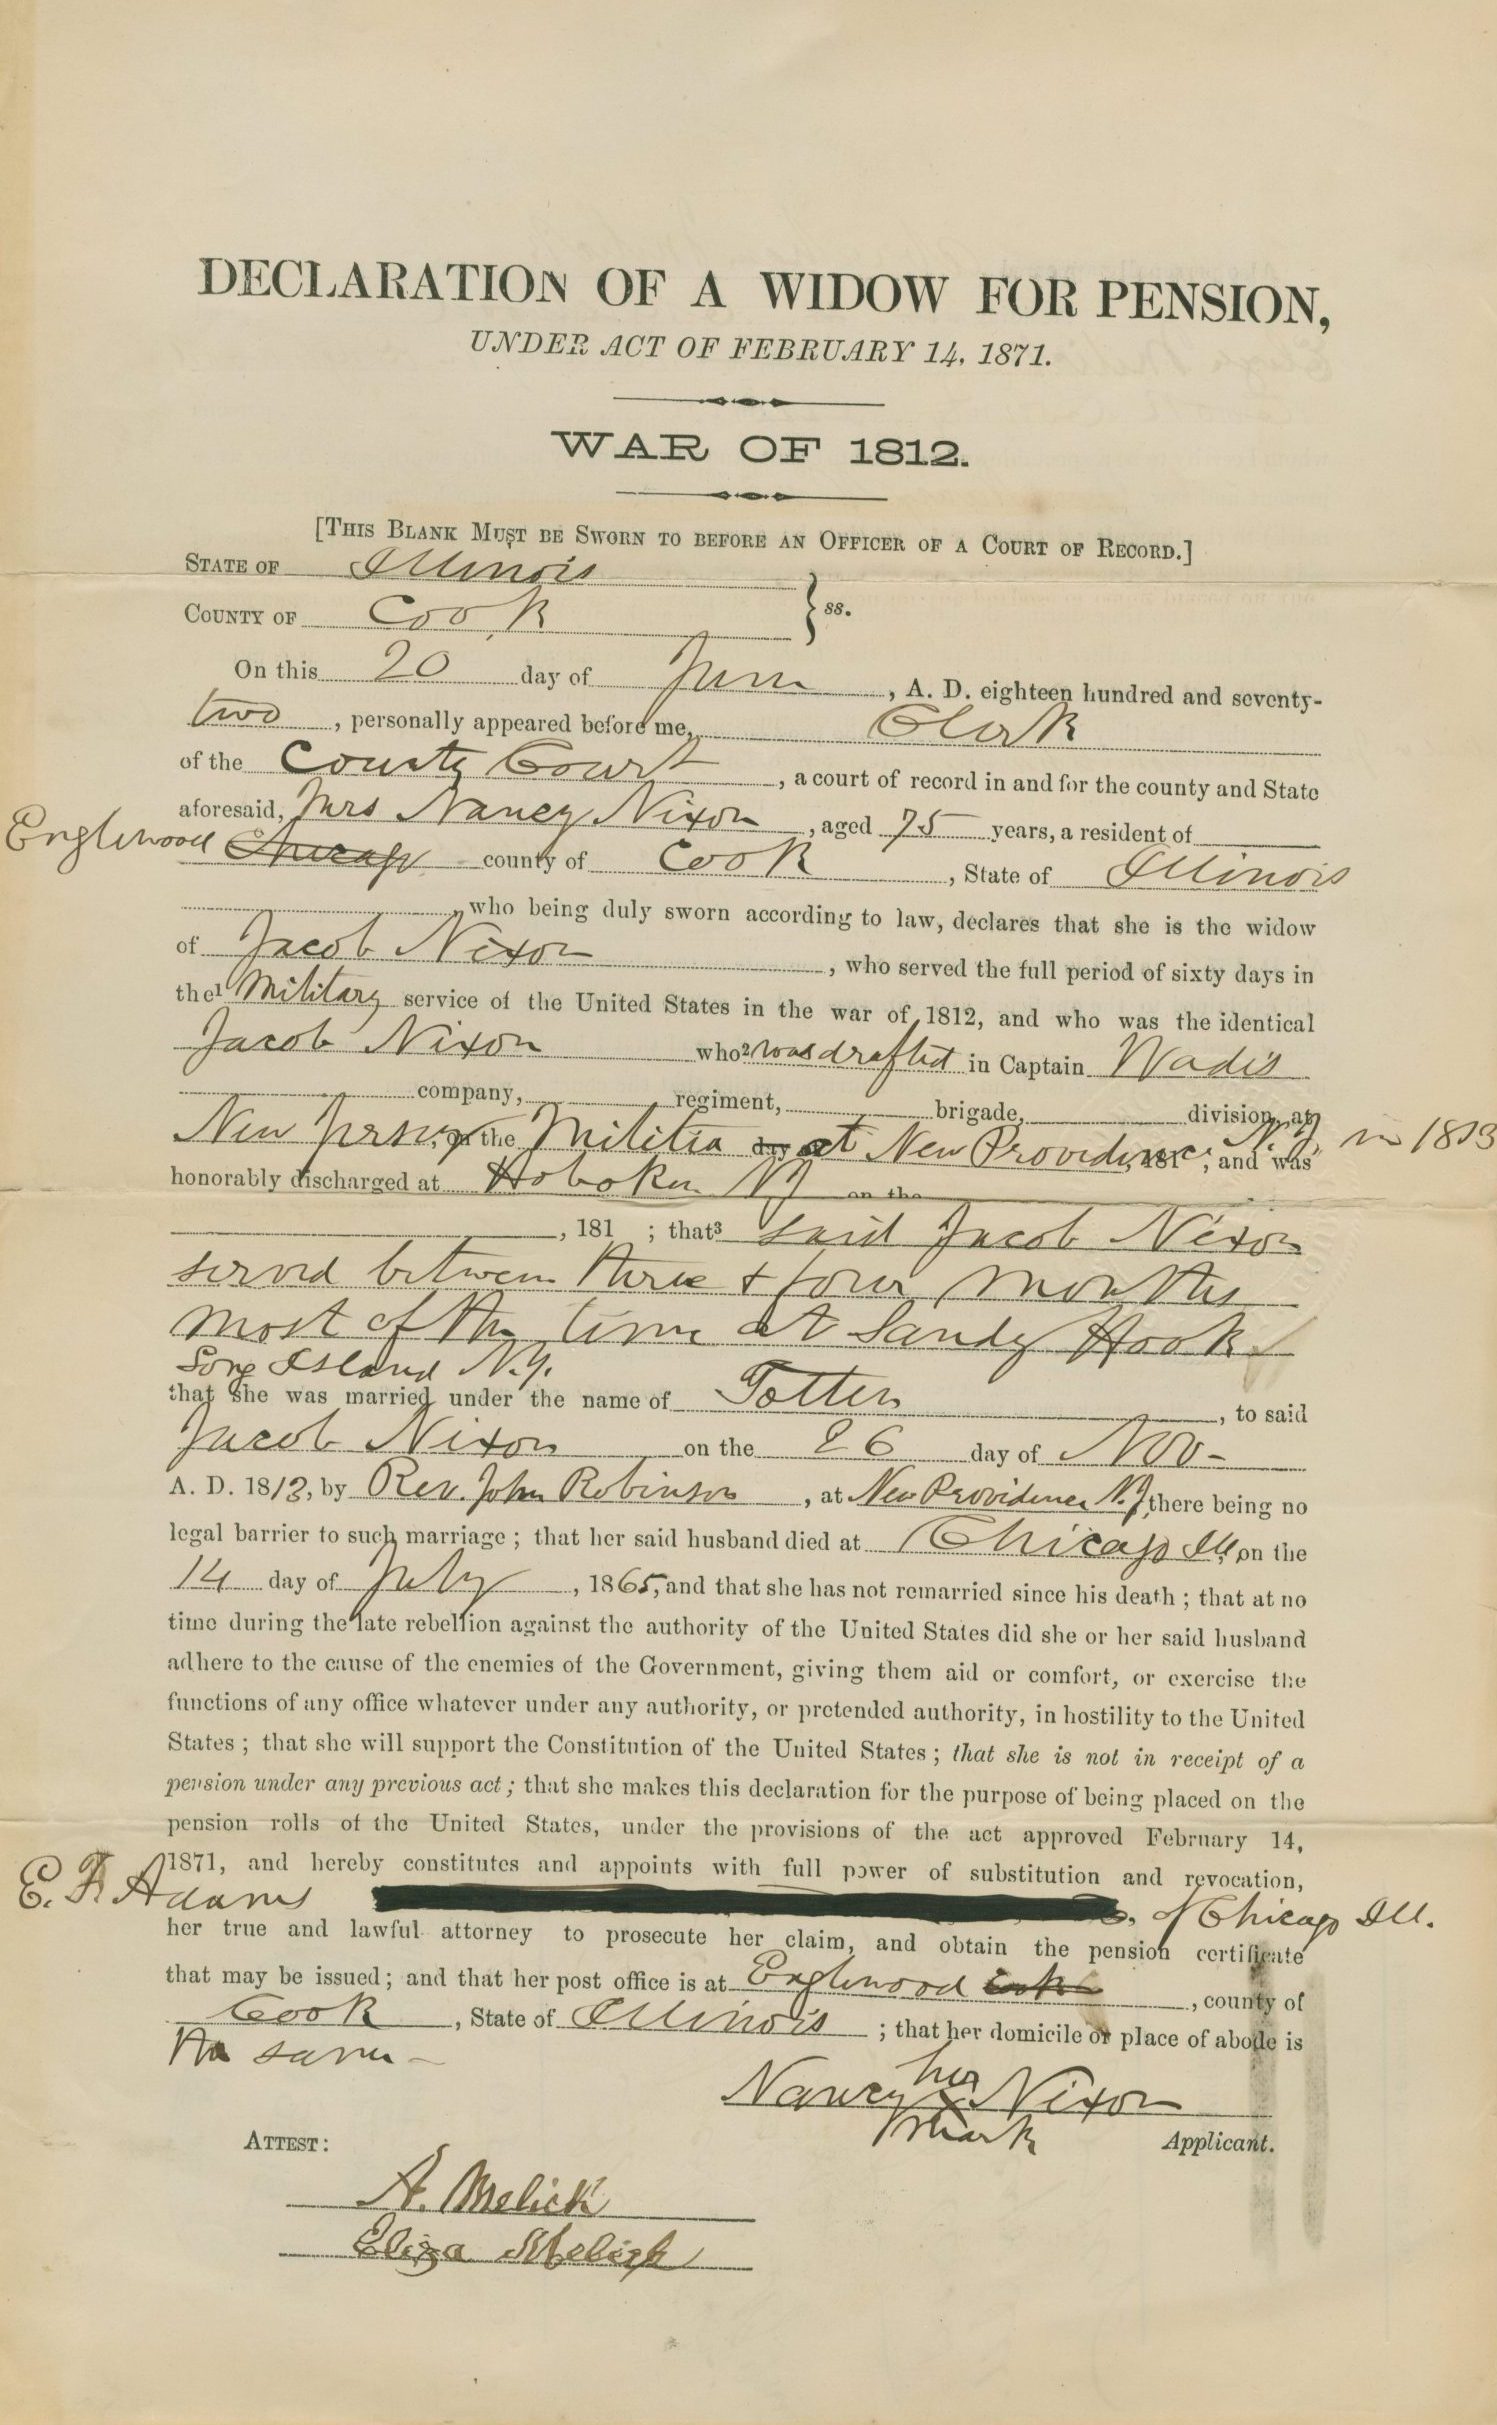 DECLARATION OF A WIDOW FOR PENSION,
UNDER ACT OF FEBRUARY 14, 1871.
WAR OF 1812.
[THIS BLANK MUST BE SWORN TO BEFORE AN OFFICER OF A COURT OF RECORD.]
STATE OF Illinois
COUNTY OF Cook } ss.
On this 20 day of June, A. D. eighteen hundred and seventy-
two, personally appeared before me, Clerk
of the County Court, a court of record in and for the county and State
aforesaid, Mrs Nancy Nixon, aged 75 years, a resident of
Englewood Chicago county of Cook, State of Illinois
, who being duly sworn according to law, declares that she is the widow
of Jacob Nixon, who served the full period of sixty days in
the¹ Military service of the United States in the war of 1812, and who was the identical
Jacob Nixon who² was drafted in Captain Wade's
company, regiment, brigade, division, at
New Jersey, on the Militia day at New Providence, N.J. in 1813 181 ; and was
honorably discharged at Hoboken NJ on the
, 181 ; that³ said Jacob Nixon
served between three & four months
most of the time at Sandy Hook
Long Island N.Y.
that she was married under the name of Totten, to said
Jacob Nixon on the 26 day of Nov-
A. D. 1813, by Rev. John Robinson, at New Providence N.J, there being no
legal barrier to such marriage ; that her said husband died at Chicago Ill, on the
14 day of July, 1865, and that she has not remarried since his death ; that at no
time during the late rebellion against the authority of the United States did she or her said husband
adhere to the cause of the enemies of the Government, giving them aid or comfort, or exercise the
functions of any office whatever under any authority, or pretended authority, in hostility to the United
States ; that she will support the Constitution of the United States ; that she is not in receipt of a
pension under any previous act ; that she makes this declaration for the purpose of being placed on the
pension rolls of the United States, under the provisions of the act approved February 14,
1871, and hereby constitutes and appoints with full power of substitution and revocation,
E. F. Adams , of Chicago Ill.
her true and lawful attorney to prosecute her claim, and obtain the pension certificate
that may be issued ; and that her post office is at Englewood, county of
Cook, State of Illinois ; that her domicile or place of abode is
the same -
Nancy her x mark Nixon
ATTEST: Applicant.
A. Melick
Eliza Melick